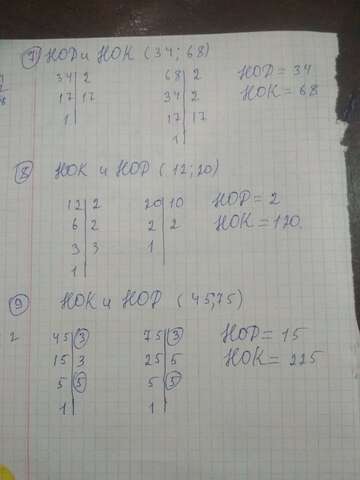 7) НОД и НОК (34; 68)
34 | 2 68 | 2 НОД = 34
17 | 17 34 | 2 НОК = 68
1 | 17 | 17
1 |
8) НОК и НОД (12; 20)
12 | 2 20 | 10 НОД = 2
6 | 2 2 | 2 НОК = 120
3 | 3 1
1 |
9) НОК и НОД (45, 75)
45 | 3 75 | 3 НОД = 15
15 | 3 25 | 5 НОК = 225
5 | 5 5 | 5
1 | 1 |